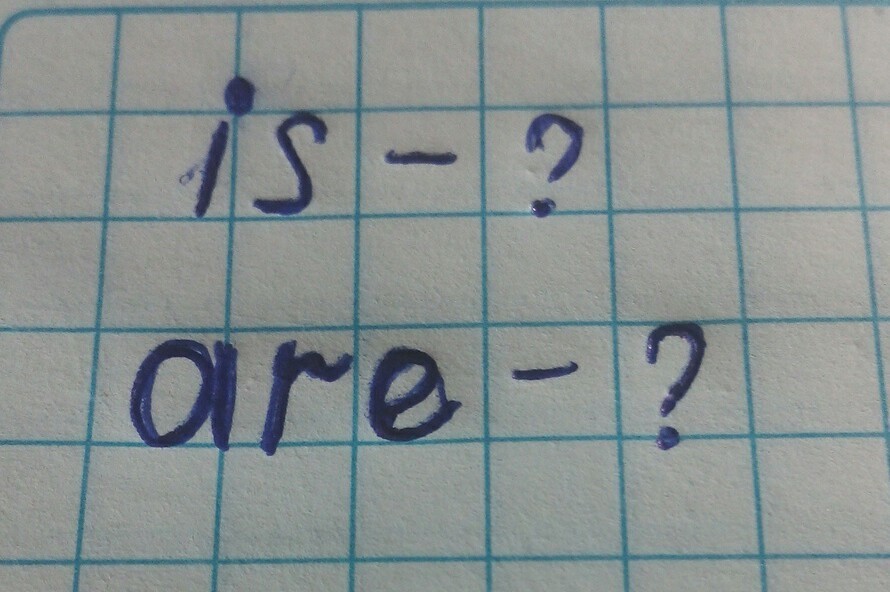 is - ?
are - ?